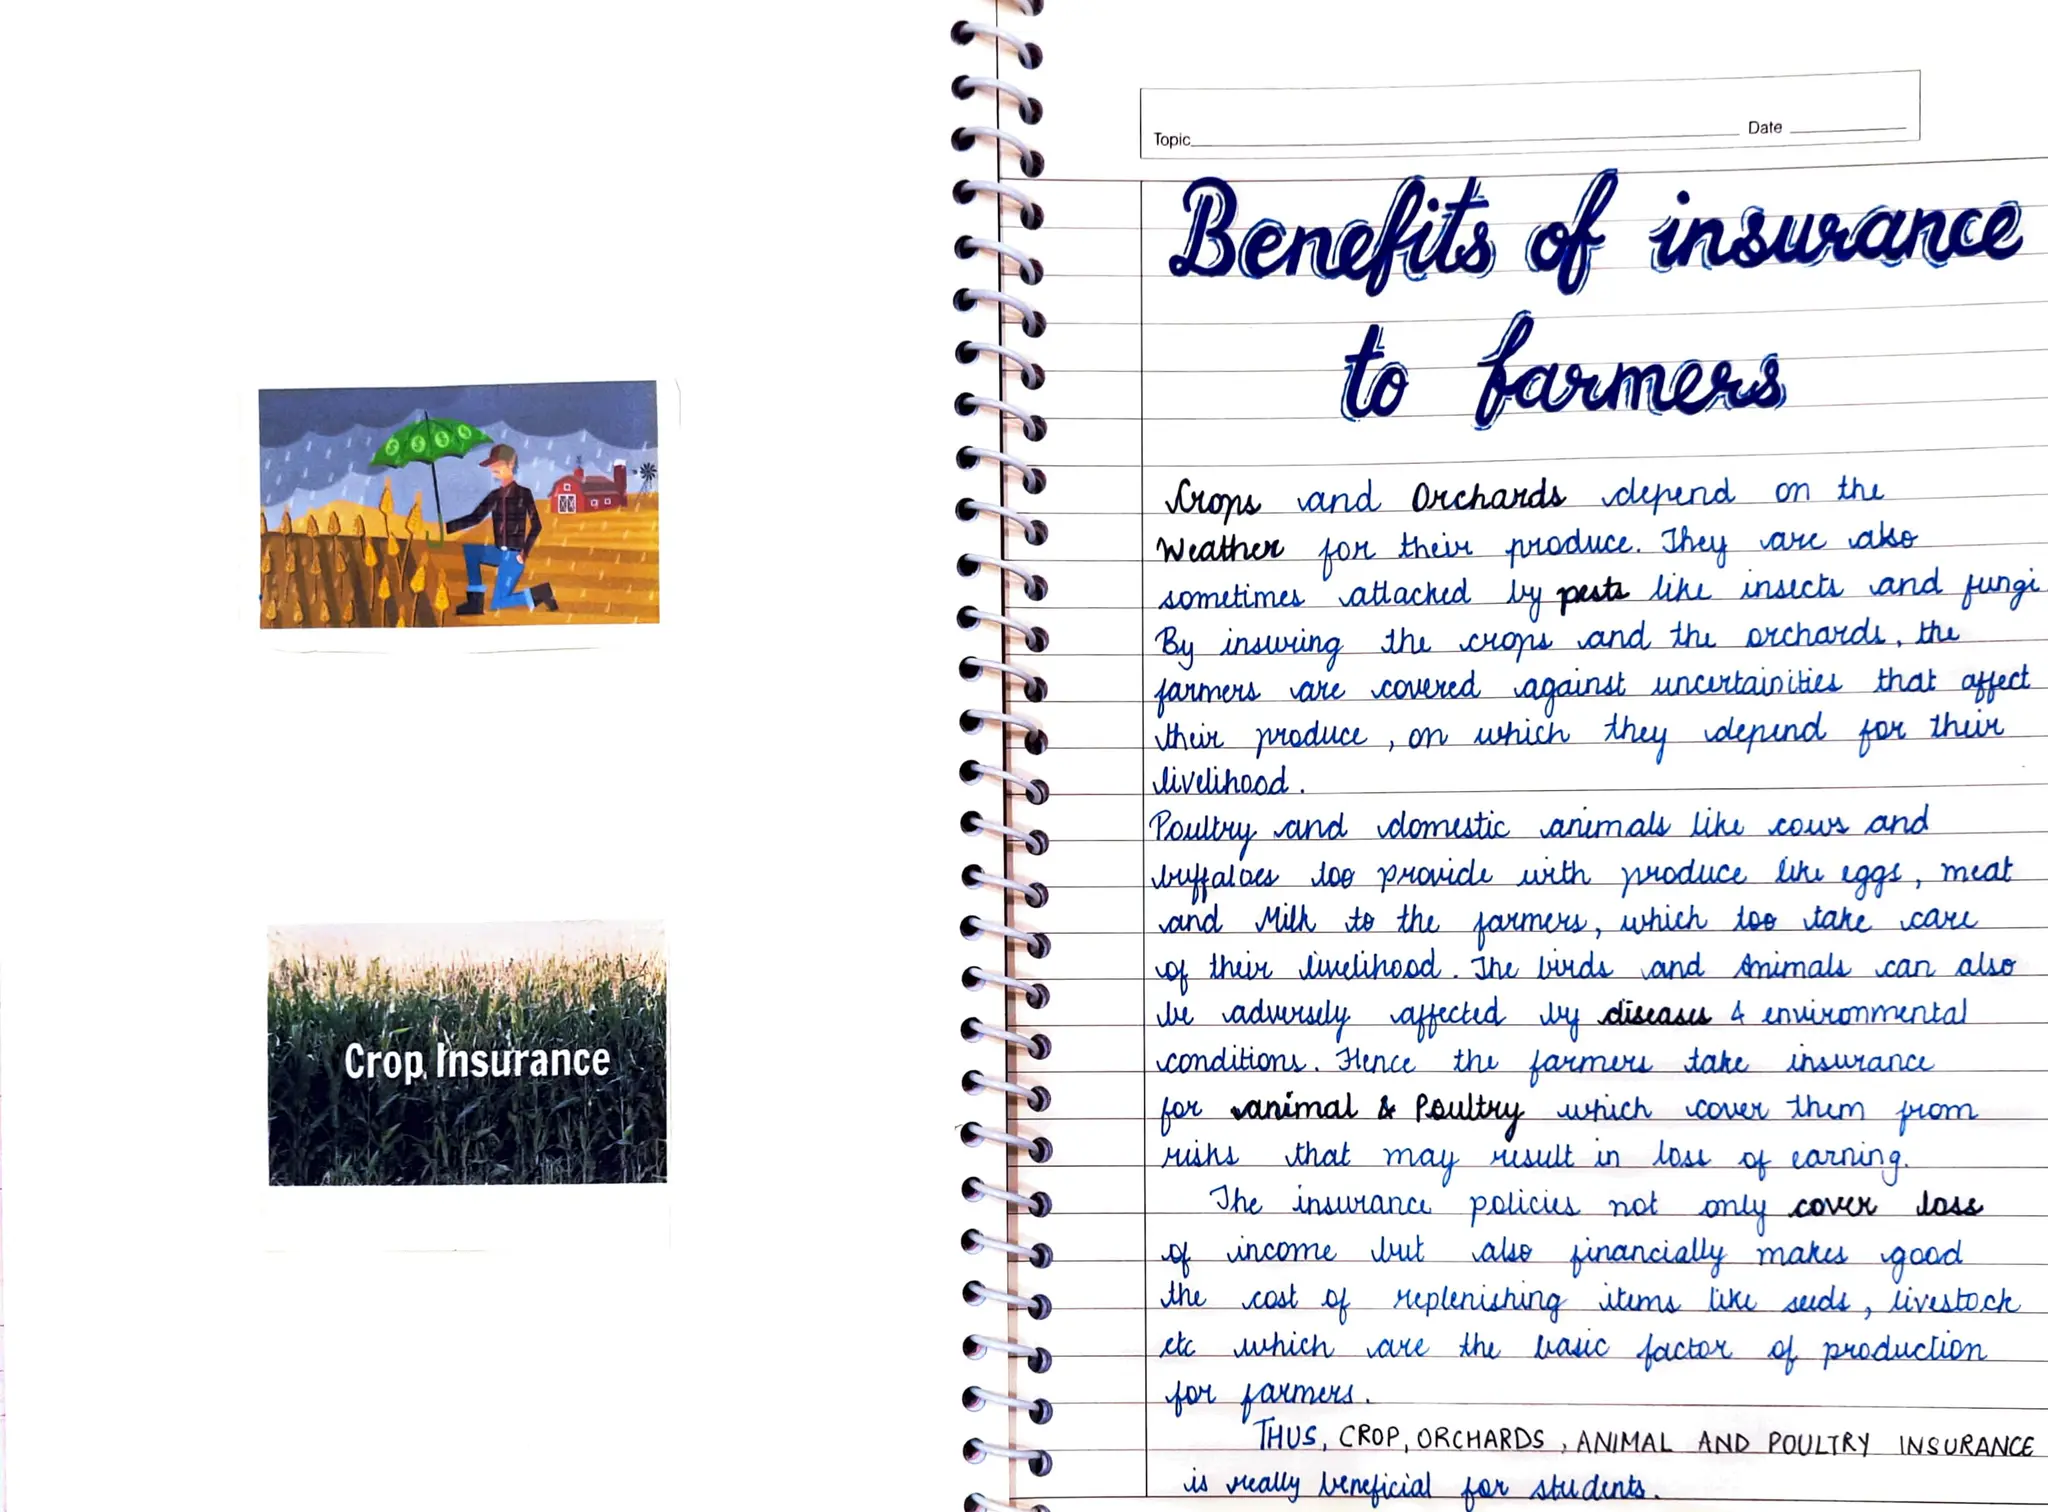 Crop Insurance
Topic Date
Benefits of insurance
to farmers
Crops and Orchards depend on the
Weather for their produce. They are also
sometimes attacked by pests like insects and fungi
By insuring the crops and the orchards, the
farmers are covered against uncertainities that affect
their produce, on which they depend for their
livelihood.
Poultry and domestic animals like cows and
buffaloes too provide with produce like eggs, meat
and Milk to the farmers, which too take care
of their livelihood. The birds and Animals can also
be adversely affected by diseases & environmental
conditions. Hence the farmers take insurance
for animal & Poultry which cover them from
risks that may result in loss of earning.
The insurance policies not only cover loss
of income but also financially makes good
the cost of replenishing items like seeds, livestock
etc which are the basic factor of production
for farmers.
THUS, CROP, ORCHARDS, ANIMAL AND POULTRY INSURANCE
is really beneficial for students.